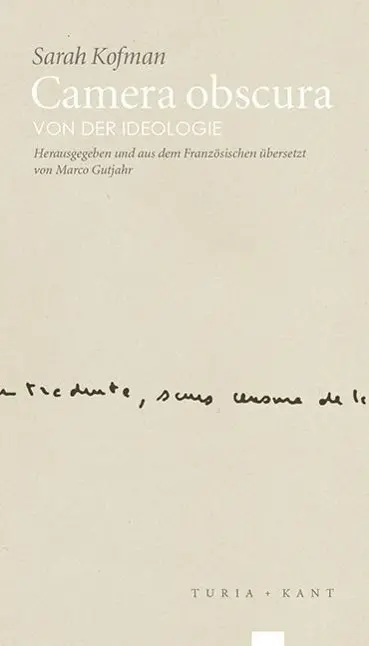 Sarah Kofman
Camera obscura
VON DER IDEOLOGIE
Herausgegeben und aus dem Französischen übersetzt
von Marco Gutjahr
traduite, sans censure de
TURIA + KANT